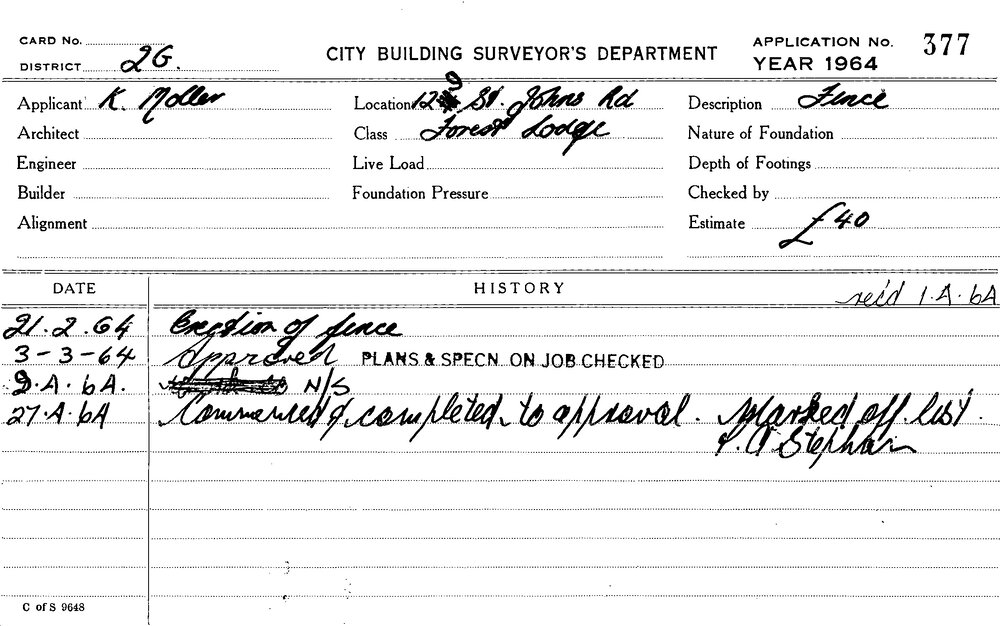 CARD No.
DISTRICT 2G.
CITY BUILDING SURVEYOR'S DEPARTMENT
APPLICATION No. 377
YEAR 1964
Applicant K. Moller
Location 129 St. Johns Rd
Description Fence
Architect
Class Forest Lodge
Nature of Foundation
Engineer
Live Load
Depth of Footings
Builder
Foundation Pressure
Checked by
Alignment
Estimate £40
DATE
HISTORY
rec'd 1.4.64
21.2.64 Erection of fence
3-3-64 Approved PLANS & SPECN. ON JOB CHECKED
2.4.64. N/S
27.4.64 Commenced & completed to approval. Marked off list.
Stephan
C of S 9648